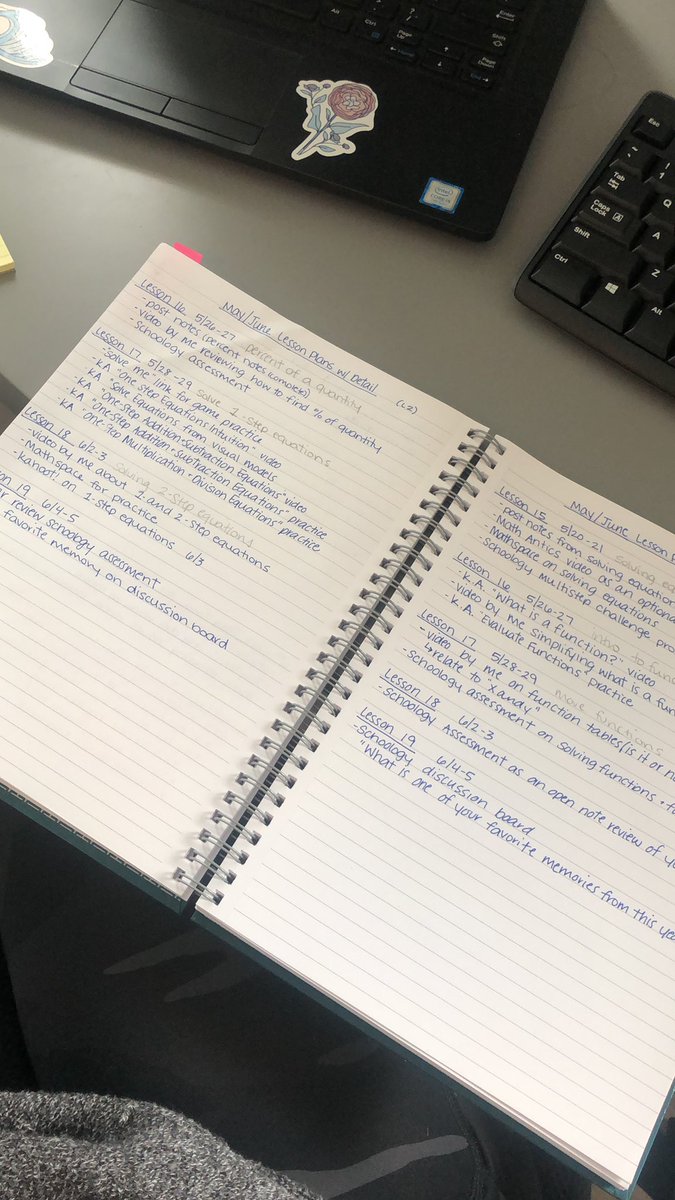 May/June Lesson Plans w/ Detail (L2)
Lesson 16 5/26-27 percent of a quantity
-post notes (percent notes complete)
-video by me reviewing how to find % of quantity
-Schoology assessment
Lesson 17 5/28-29 solve 1-step equations
-"Solve me" link for game practice
-KA "One step Equations Intuition" video
-KA "Solve Equations from visual models
-KA "One-Step Addition+Subtraction Equations" video
-KA "One-Step Addition+Subtraction Equations" practice
-KA "One-Step Multiplication+Division Equations" practice
Lesson 18 6/2-3 Solving 2-step equations
-video by me about 1 and 2-step equations
-Mathspace for practice
-kahoot! on 1-step equations 6/3
on 19 6/4-5
r review schoology assessment
favorite memory on discussion board
May/June Lesson P
Lesson 15 5/20-21 Solving eq
-post notes from solving equation
-Math Antics video as an optiona
-Mathspace on solving equations
-Schoology multistep challenge pro
Lesson 16 5/26-27 Intro to func
-K.A. "What is a function?" video
-video by me simplifying what is a fun
-K.A. Evaluate Functions" practice
Lesson 17 5/28-29 More functions
-video by me on function tables (is it or no
↳relate to "x and y"
-Schoology assessment on solving functions + ta
Lesson 18 6/2-3
-Schoology Assessment as an open note review of yo
Lesson 19 6/4-5
-Schoology discussion board
"What is one of your favorite memories from this yea
Enter
Shift
Alt
Ctrl
Page Up
Page Down
End
intel
CORE i5
Esc
~
`
!
1
Tab
Q
Caps Lock
A
A
Shift
Z
Ctrl
Alt